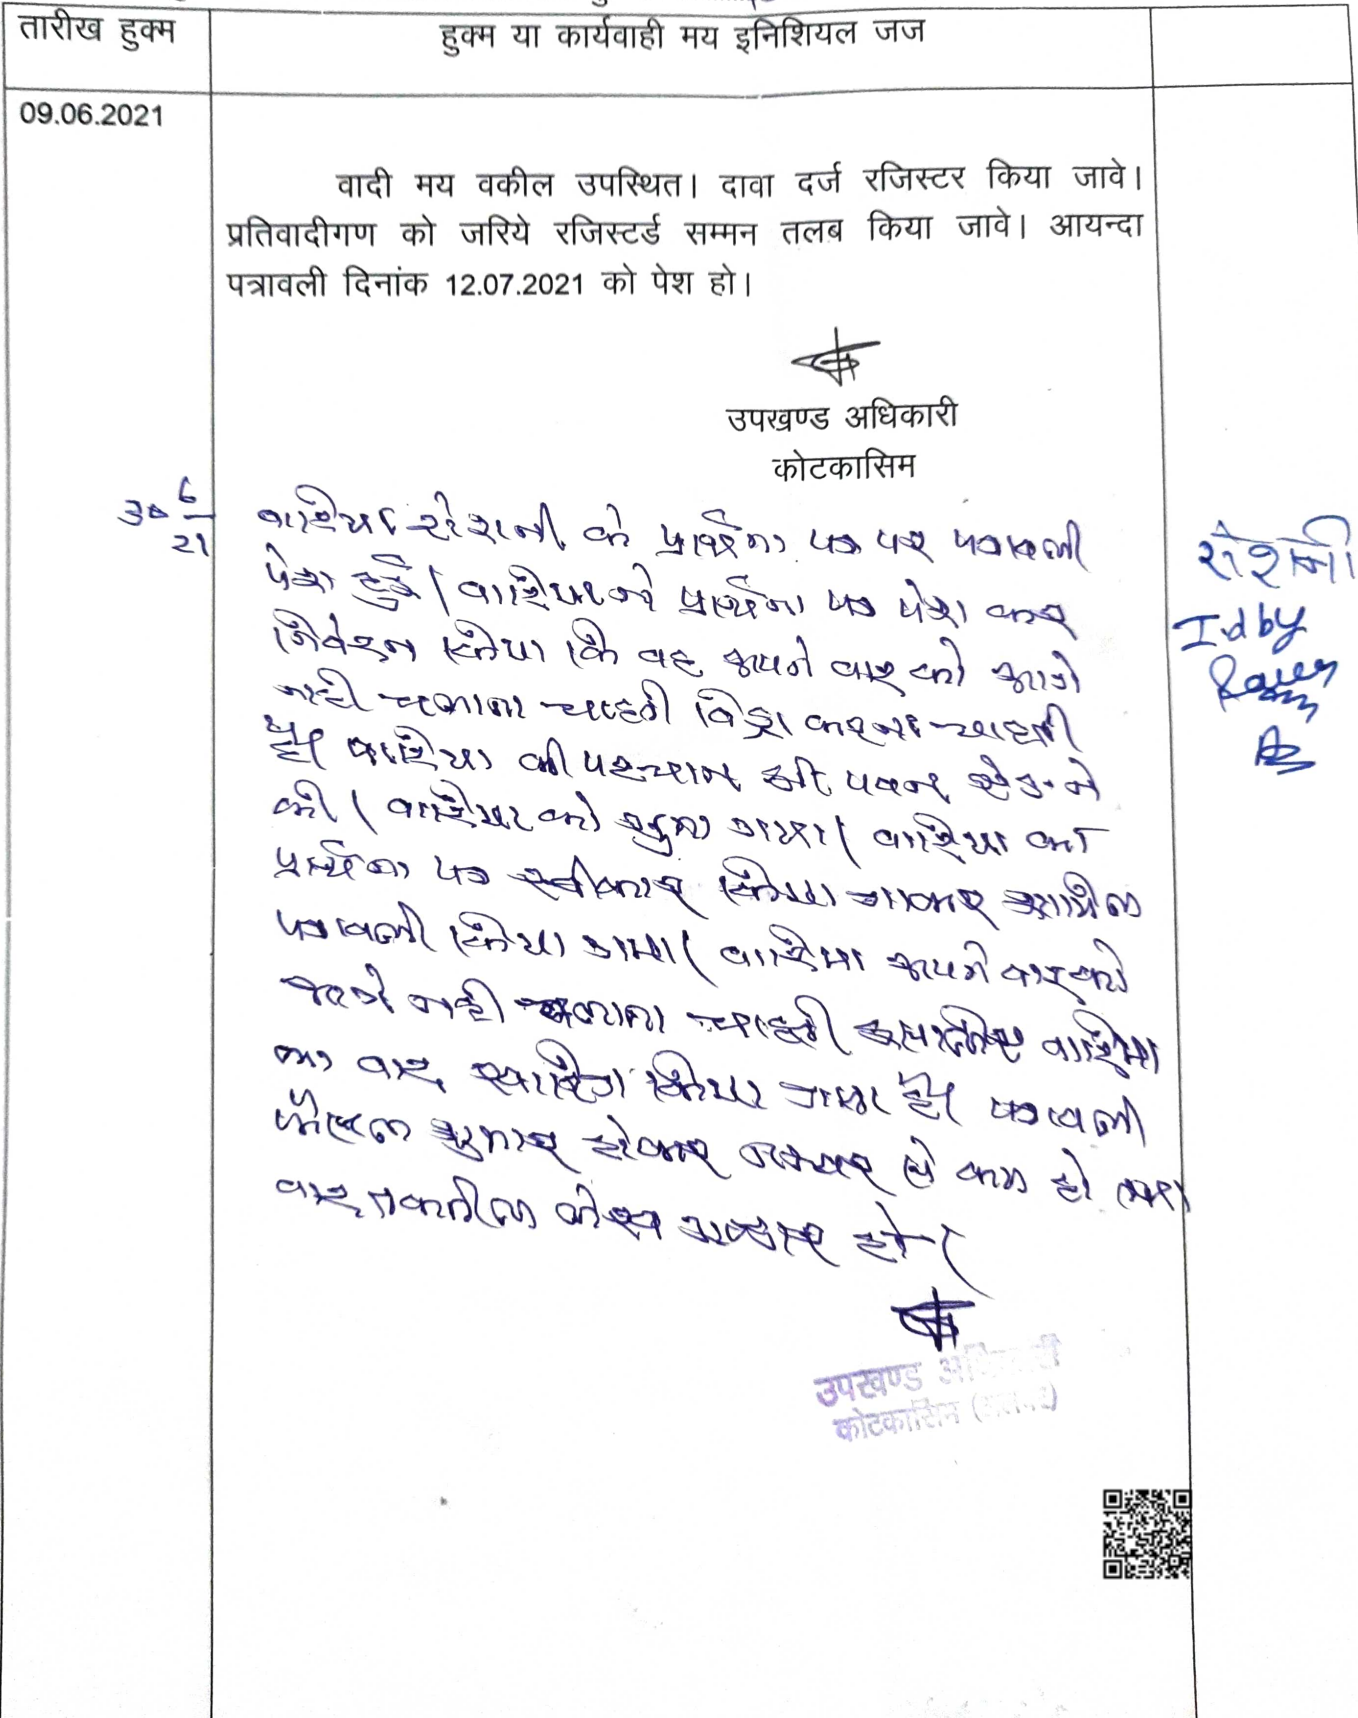 तारीख हुक्म
हुक्म या कार्यवाही मय इनिशियल जज
09.06.2021
वादी मय वकील उपस्थित। दावा दर्ज रजिस्टर किया जावे।
प्रतिवादीगण को जरिये रजिस्टर्ड सम्मन तलब किया जावे। आयन्दा
पत्रावली दिनांक 12.07.2021 को पेश हो।
उपखण्ड अधिकारी
कोटकासिम
30 6/21
वादिया रोशनी के प्रार्थना पत्र पर पत्रावली
पेश हुई। वादिया ने प्रार्थना पत्र पेश कर
निवेदन किया कि वह अपने वाद को आगे
नही चलाना चाहती विड्रा करना चाहती
है। वादिया की पहचान श्री पवन ने
की। वादिया को सुना गया। वादिया का
प्रार्थना पत्र स्वीकार किया जाकर शामिल
पत्रावली किया गया। वादिया अपने वाद को
आगे नही चलाना चाहती इसलिए वादिया
का वाद खारिज किया गया है। पत्रावली
फैसल शुमार होकर नम्बर से कम हो
बाद तकमील लेख भण्डार हो।
रोशनी
Id by
उपखण्ड अधिकारी
कोटकासिम (अलवर)